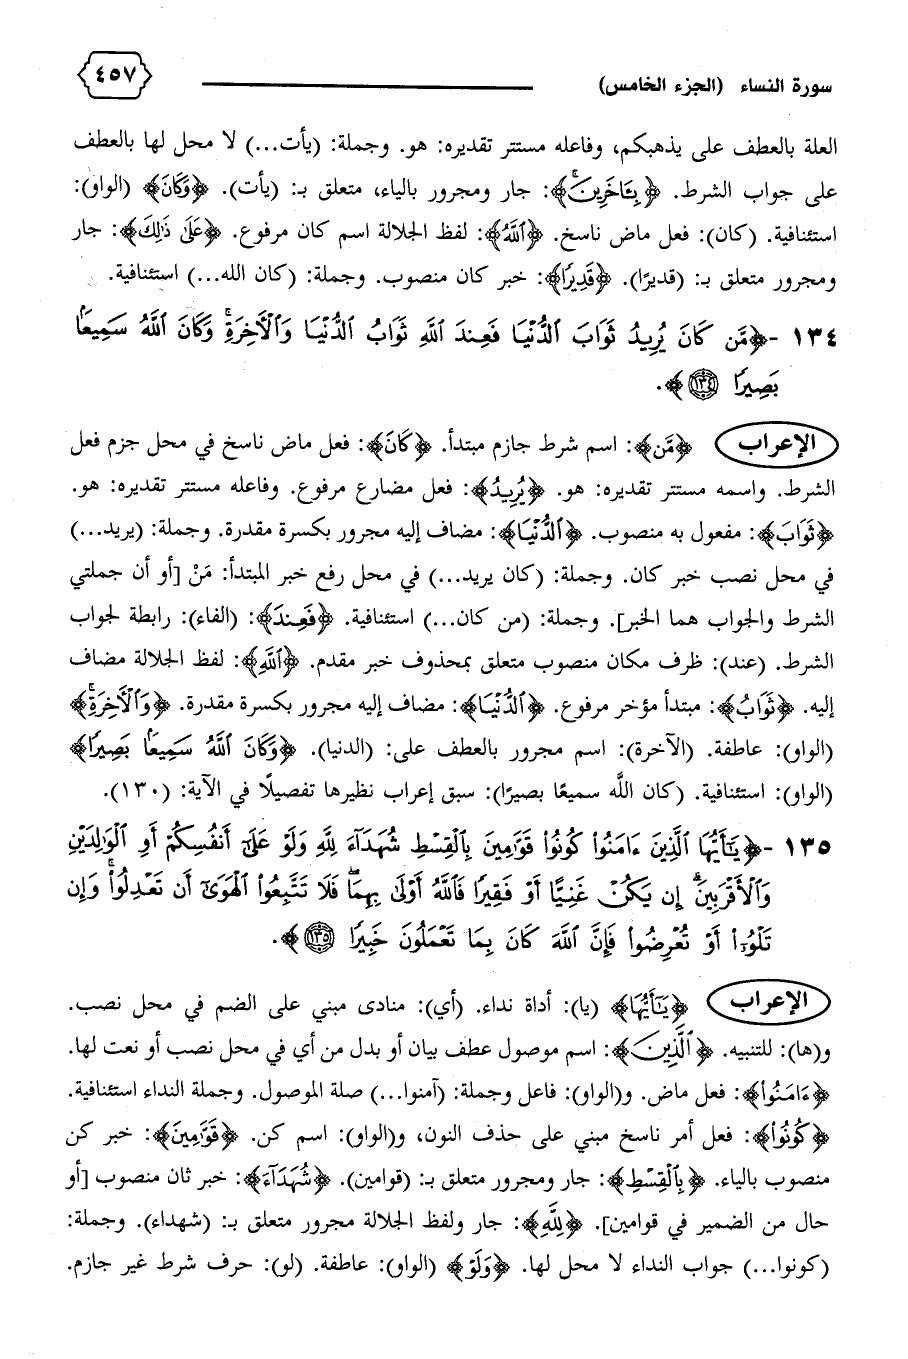 سورة النساء (الجزء الخامس)
٤٥٧
العلة بالعطف على يذهبكم، وفاعله مستتر تقديره: هو. وجملة: (يأت...) لا محل لها بالعطف
على جواب الشرط. ﴿بِـَٔاخَرِينَۚ﴾: جار ومجرور بالياء، متعلق بـ: (يأت). ﴿وَكَانَ﴾ (الواو):
استئنافية. (كان): فعل ماض ناسخ. ﴿ٱللَّهُ﴾: لفظ الجلالة اسم كان مرفوع. ﴿عَلَىٰ ذَٰلِكَ﴾: جار
ومجرور متعلق بـ: (قديرًا). ﴿قَدِيرًا﴾: خبر كان منصوب. وجملة: (كان الله...) استئنافية.
١٣٤ -﴿مَّن كَانَ يُرِيدُ ثَوَابَ ٱلدُّنۡيَا فَعِندَ ٱللَّهِ ثَوَابُ ٱلدُّنۡيَا وَٱلۡأٓخِرَةِۚ وَكَانَ ٱللَّهُ سَمِيعَۢا
بَصِيرٗا ١٣٤﴾.
الإعراب ﴿مَّن﴾: اسم شرط جازم مبتدأ. ﴿كَانَ﴾: فعل ماض ناسخ في محل جزم فعل
الشرط. واسمه مستتر تقديره: هو. ﴿يُرِيدُ﴾: فعل مضارع مرفوع. وفاعله مستتر تقديره: هو.
﴿ثَوَابَ﴾: مفعول به منصوب. ﴿ٱلدُّنۡيَا﴾: مضاف إليه مجرور بكسرة مقدرة. وجملة: (يريد...)
في محل نصب خبر كان. وجملة: (كان يريد...) في محل رفع خبر المبتدأ: مَنْ [أو أن جملتي
الشرط والجواب هما الخبر]. وجملة: (من كان...) استئنافية. ﴿فَعِندَ﴾: (الفاء): رابطة لجواب
الشرط. (عند): ظرف مكان منصوب متعلق بمحذوف خبر مقدم. ﴿ٱللَّهِ﴾: لفظ الجلالة مضاف
إليه. ﴿ثَوَابُ﴾: مبتدأ مؤخر مرفوع. ﴿ٱلدُّنۡيَا﴾: مضاف إليه مجرور بكسرة مقدرة. ﴿وَٱلۡأٓخِرَةِۚ﴾
(الواو): عاطفة. (الآخرة): اسم مجرور بالعطف على: (الدنيا). ﴿وَكَانَ ٱللَّهُ سَمِيعَۢا بَصِيرٗا﴾
(الواو): استئنافية. (كان اللَّه سميعًا بصيرًا): سبق إعراب نظيرها تفصيلًا في الآية: (١٣٠).
١٣٥ -﴿يَـٰٓأَيُّهَا ٱلَّذِينَ ءَامَنُواْ كُونُواْ قَوَّـٰمِينَ بِٱلۡقِسۡطِ شُهَدَآءَ لِلَّهِ وَلَوۡ عَلَىٰٓ أَنفُسِكُمۡ أَوِ ٱلۡوَٰلِدَيۡنِ
وَٱلۡأَقۡرَبِينَۚ إِن يَكُنۡ غَنِيًّا أَوۡ فَقِيرٗا فَٱللَّهُ أَوۡلَىٰ بِهِمَاۖ فَلَا تَتَّبِعُواْ ٱلۡهَوَىٰٓ أَن تَعۡدِلُواْۚ وَإِن
تَلۡوُۥٓاْ أَوۡ تُعۡرِضُواْ فَإِنَّ ٱللَّهَ كَانَ بِمَا تَعۡمَلُونَ خَبِيرٗا ١٣٥﴾.
الإعراب ﴿يَـٰٓأَيُّهَا﴾ (يا): أداة نداء. (أي): منادى مبني على الضم في محل نصب.
و(ها): للتنبيه. ﴿ٱلَّذِينَ﴾: اسم موصول عطف بيان أو بدل من أي في محل نصب أو نعت لها.
﴿ءَامَنُواْ﴾: فعل ماض. و(الواو): فاعل وجملة: (آمنوا...) صلة الموصول. وجملة النداء استئنافية.
﴿كُونُواْ﴾: فعل أمر ناسخ مبني على حذف النون، و(الواو): اسم كن. ﴿قَوَّـٰمِينَ﴾: خبر كن
منصوب بالياء. ﴿بِٱلۡقِسۡطِ﴾: جار ومجرور متعلق بـ: (قوامين). ﴿شُهَدَآءَ﴾: خبر ثان منصوب [أو
حال من الضمير في قوامين]. ﴿لِلَّهِ﴾: جار ولفظ الجلالة مجرور متعلق بـ: (شهداء). وجملة:
(كونوا...) جواب النداء لا محل لها. ﴿وَلَوۡ﴾ (الواو): عاطفة. (لو): حرف شرط غير جازم.